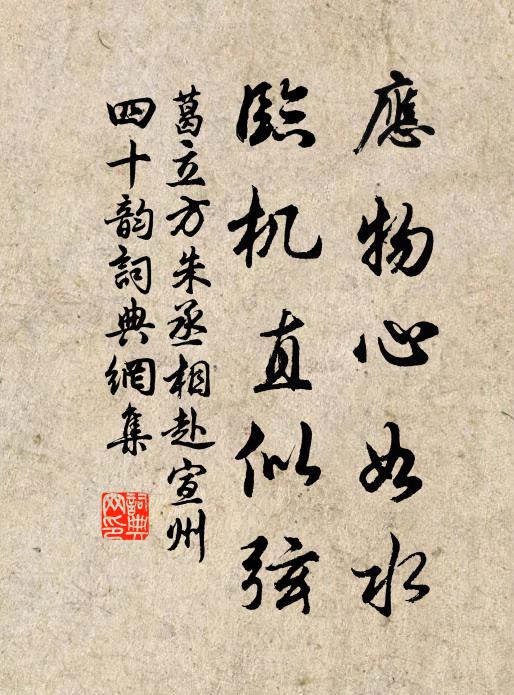 應物心如水
臨机直似弦
葛立方朱丞相赴宣州
四十韵詞典網集
詞典網印